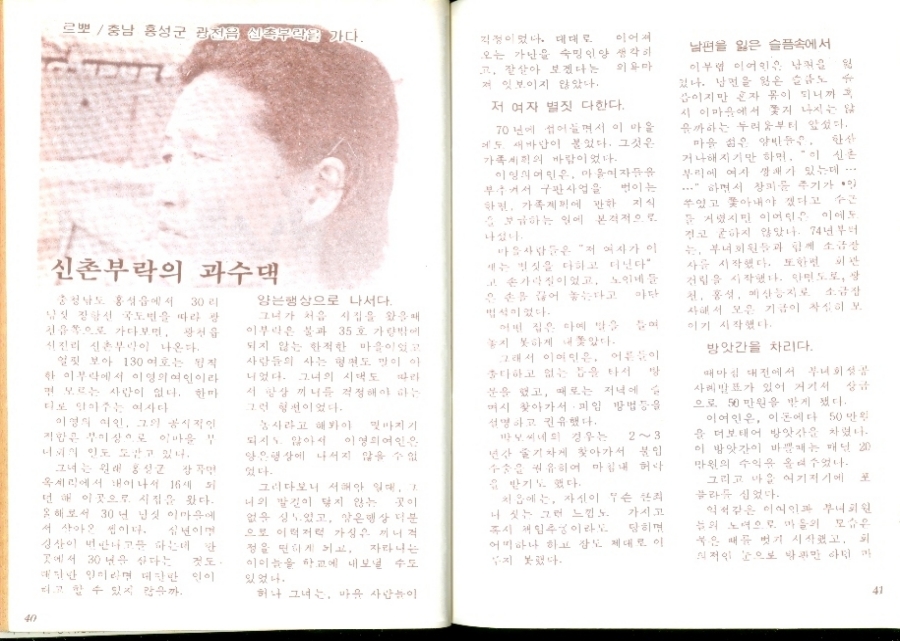 르뽀 / 충남 홍성군 광천읍 신촌부락을 가다.
신촌부락의 과수댁
충청남도 홍성읍에서 30리
남짓 포장된 국도변을 따라 광
천읍쪽으로 가다보면, 광천읍
신진리 신촌부락이 나온다.
얼핏 보아 130여호는 됨직
한 이부락에서 이영의여인이라
면 모르는 사람이 없다. 한마
디로 알아주는 여자다
이영의 여인, 그의 공식적인
직함은 부이장으로 이마을 부
녀회의 일도 도맡고 있다.
그녀는 원래 홍성군 장곡면
옥계리에서 태어나서 16세 되
던 해 이곳으로 시집을 왔다.
올해로서 30년 남짓 이마을에
서 살아온 셈이다. 십년이면
강산이 변한다고들 하는데 한
곳에서 30년을 산다는 것도.
대단한 일이라면 대단한 일이
라고 할 수 있지 않을까.
양은행상으로 나서다.
그녀가 처음 시집을 왔을때
이부락은 불과 35호 가량밖에
되지 않는 한적한 마을이었고
사람들의 사는 형편도 말이 아
니었다. 그녀의 시댁도 따라
서 항상 끼니를 걱정해야 하는
그런 형편이었다.
농사라고 해봐야 몇마지기
되지도 않아서 이영의여인은
양은행상에 나서지 않을 수 없
었다.
그러다보니 서해안 일대, 그
녀의 발길이 닿지 않는 곳이
없을 정도였고, 양은행상 덕분
으로 이럭저럭 가정은 끼니걱
정을 면하게 되고, 자라나는
아이들을 학교에 내보낼 수도
있었다.
허나 그녀는, 마을 사람들이
40
걱정이었다. 대대로 이어져
오는 가난을 숙명인양 생각하
고, 잘살아 보겠다는 의욕마
저 엿보이지 않았다.
저 여자 별짓 다한다.
70년에 접어들면서 이 마을
에도 새바람이 불었다. 그것은
가족계획의 바람이었다.
이영의여인은, 마을여자들을
부추겨서 구판사업을 벌이는
한편, 가족계획에 관한 지식
을 보급하는 일에 본격적으로
나섰다.
마을사람들은 "저 여자가 이
제는 별짓을 다하고 다닌다"
고 손가락질이었고, 노인네들
은 손을 끊어 놓는다고 야단
법석이었다.
어떤 집은 아예 발을 들여
놓지 못하게 내쫓았다.
그래서 이여인은, 어른들이
출타하고 없는 틈을 타서 방
문을 했고, 때로는 저녁에 숨
어서 찾아가서 피임 방법등을
설명하고 권유했다.
2～3
년간 줄기차게 찾아가서 불임
수술을 권유하여 마침내 허락
을 받기도 했다.
처음에는, 자신이 무슨 산죄
나 짓는 그런 느낌도 가시고
혹시 책임추궁이라도 당하면
어떡하나 하고 잠도 제대로 이
루지 못했다.
남편을 잃은 슬픔속에서
이무렵 이여인은 남편을 잃
었다. 남편을 잃은 슬픔도 슬
픔이지만 혼자 몸이 되니까 혹
시 이마을에서 쫓겨 나지는 않
을까하는 두려움부터 앞섰다.
마을 젊은 양반들은, 한잔
거나해지기만 하면, "이 신촌
부락에 여자 깡패가 있는데…
…" 하면서
쫓아내야 겠다고 수근
이여인은 이에도
결코 굴하지 않았다. 74년부터
는, 부녀회원들과 함께 소금장
사를 시작했다. 또한편 회관
건립을 시작했다. 안면도로, 광
천, 홍성, 예산등지로 소금장
사해서 모은 기금이 착실히 모
이기 시작했다.
방앗간을 차리다.
때마침 대전에서 부녀회성공
사례발표가 있어 거기서 상금
으로 50만원을 받게 됐다.
이여인은, 이돈에다 50만원
을 더보태어 방앗간을 차렸다.
이 방앗간이 바쁠때는 매년 20
만원의 수익을 올려주었다.
그리고 마을 여기저기에 포
플라를 심었다.
억척같은 이여인과 부녀회원
들의 노력으로 마을의 모습은
묵은 때를 벗기 시작했고, 회
의적인 눈으로 방관만 하던 마
41